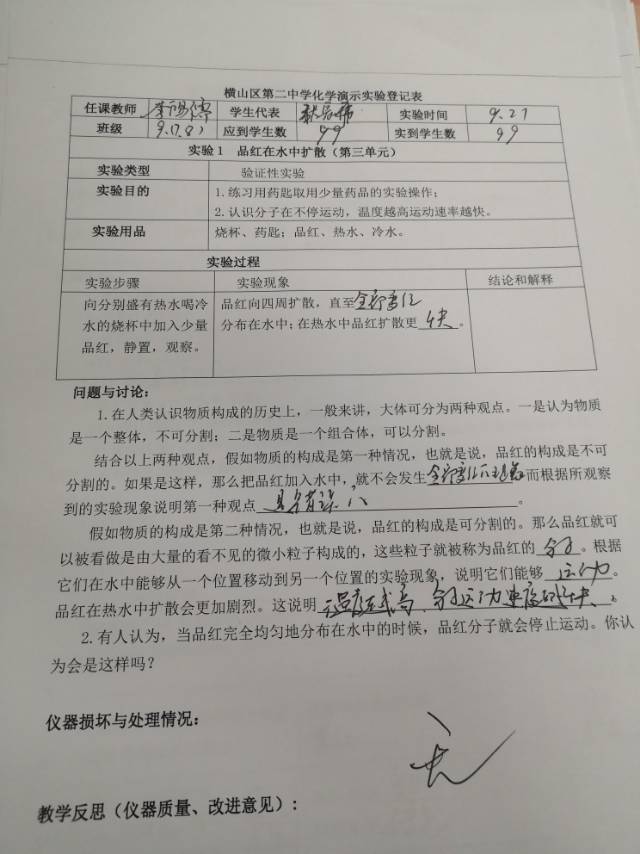 横山区第二中学化学演示实验登记表
任课教师 学生代表 实验时间 9.27
班级 应到学生数 99 实到学生数 99
实验1 品红在水中扩散（第三单元）
实验类型 验证性实验
实验目的 1.练习用药匙取用少量药品的实验操作；
2.认识分子在不停运动，温度越高运动速率越快。
实验用品 烧杯、药匙；品红、热水、冷水。
实验过程
实验步骤 实验现象 结论和解释
向分别盛有热水喝冷 品红向四周扩散，直至全部变红
水的烧杯中加入少量 分布在水中；在热水中品红扩散更快。
品红，静置，观察。
问题与讨论：
1.在人类认识物质构成的历史上，一般来讲，大体可分为两种观点。一是认为物质
是一个整体，不可分割；二是物质是一个组合体，可以分割。
结合以上两种观点，假如物质的构成是第一种情况，也就是说，品红的构成是不可
分割的。如果是这样，那么把品红加入水中，就不会发生全部变红而根据所观察
到的实验现象说明第一种观点是错误。
假如物质的构成是第二种情况，也就是说，品红的构成是可分割的。那么品红就可
以被看做是由大量的看不见的微小粒子构成的，这些粒子就被称为品红的分子。根据
它们在水中能够从一个位置移动到另一个位置的实验现象，说明它们能够运动。
品红在热水中扩散会更加剧烈。这说明温度越高，分子运动速度越快。
2.有人认为，当品红完全均匀地分布在水中的时候，品红分子就会停止运动。你认
为会是这样吗？
仪器损坏与处理情况：
无
教学反思（仪器质量、改进意见）：